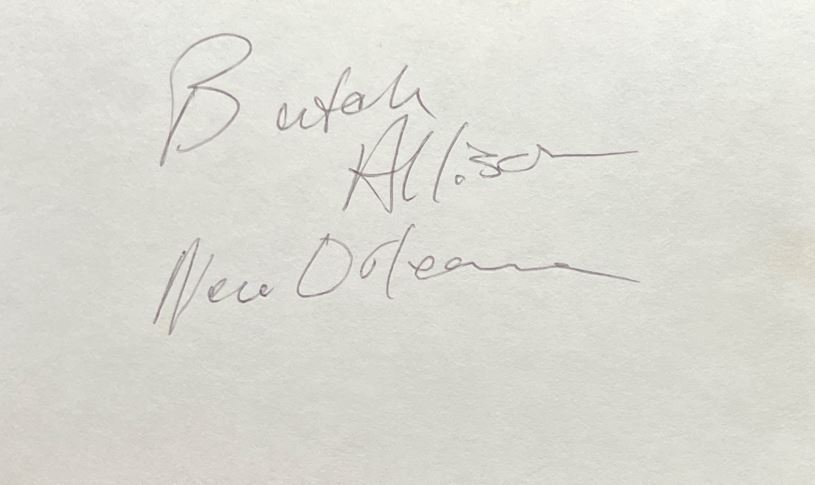 Butch
Allison
New Orleans